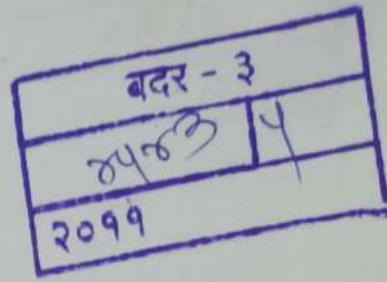 बदर - ३
४५४३ ५
२०११